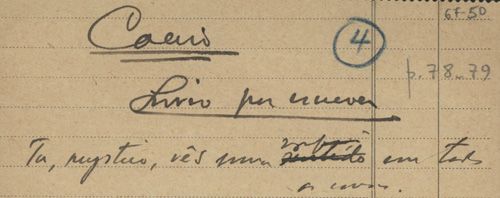 67-50
Caeiro
4
p. 78-79
Livro por escrever
Tu, mystico, vês uma em todas
as cousas.